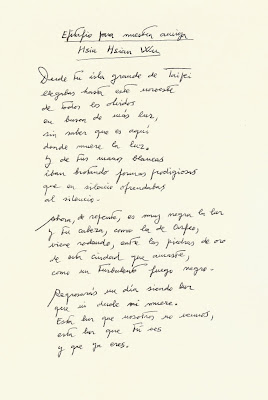 Epitafio para nuestra amiga
Hsia Hsian Wu
Desde tu isla grande de Taipei
llegabas hasta este noroeste
de todos los olvidos
en busca de más luz,
sin saber que es aquí
donde muere la luz.
Y de tus manos blancas
iban brotando formas prodigiosas
que en silencio ofrendabas
al silencio.
Ahora, de repente, es muy negra la luz
y tu cabeza, como la de Orfeo,
viene rodando, entre las piedras de oro
de esta ciudad que amaste,
como un turbulento fuego negro.
Regresarás un día siendo luz
que sin duda no muere.
Esta luz que nosotros no vemos,
esta luz que tú ves
y que ya eres.